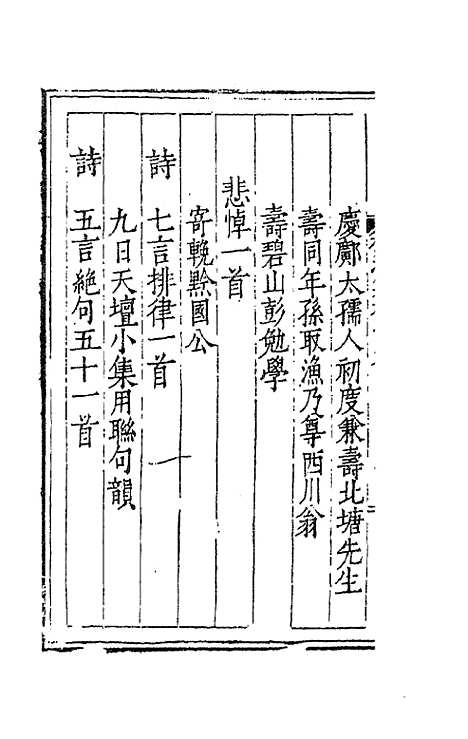 慶鄺太孺人初度兼壽北塘先生
壽同年孫取漁乃尊西川翁
壽碧山彭勉學
悲悼一首
寄輓黔國公
詩 七言排律一首
九日天壇小集用聯句韻
詩 五言絶句五十一首